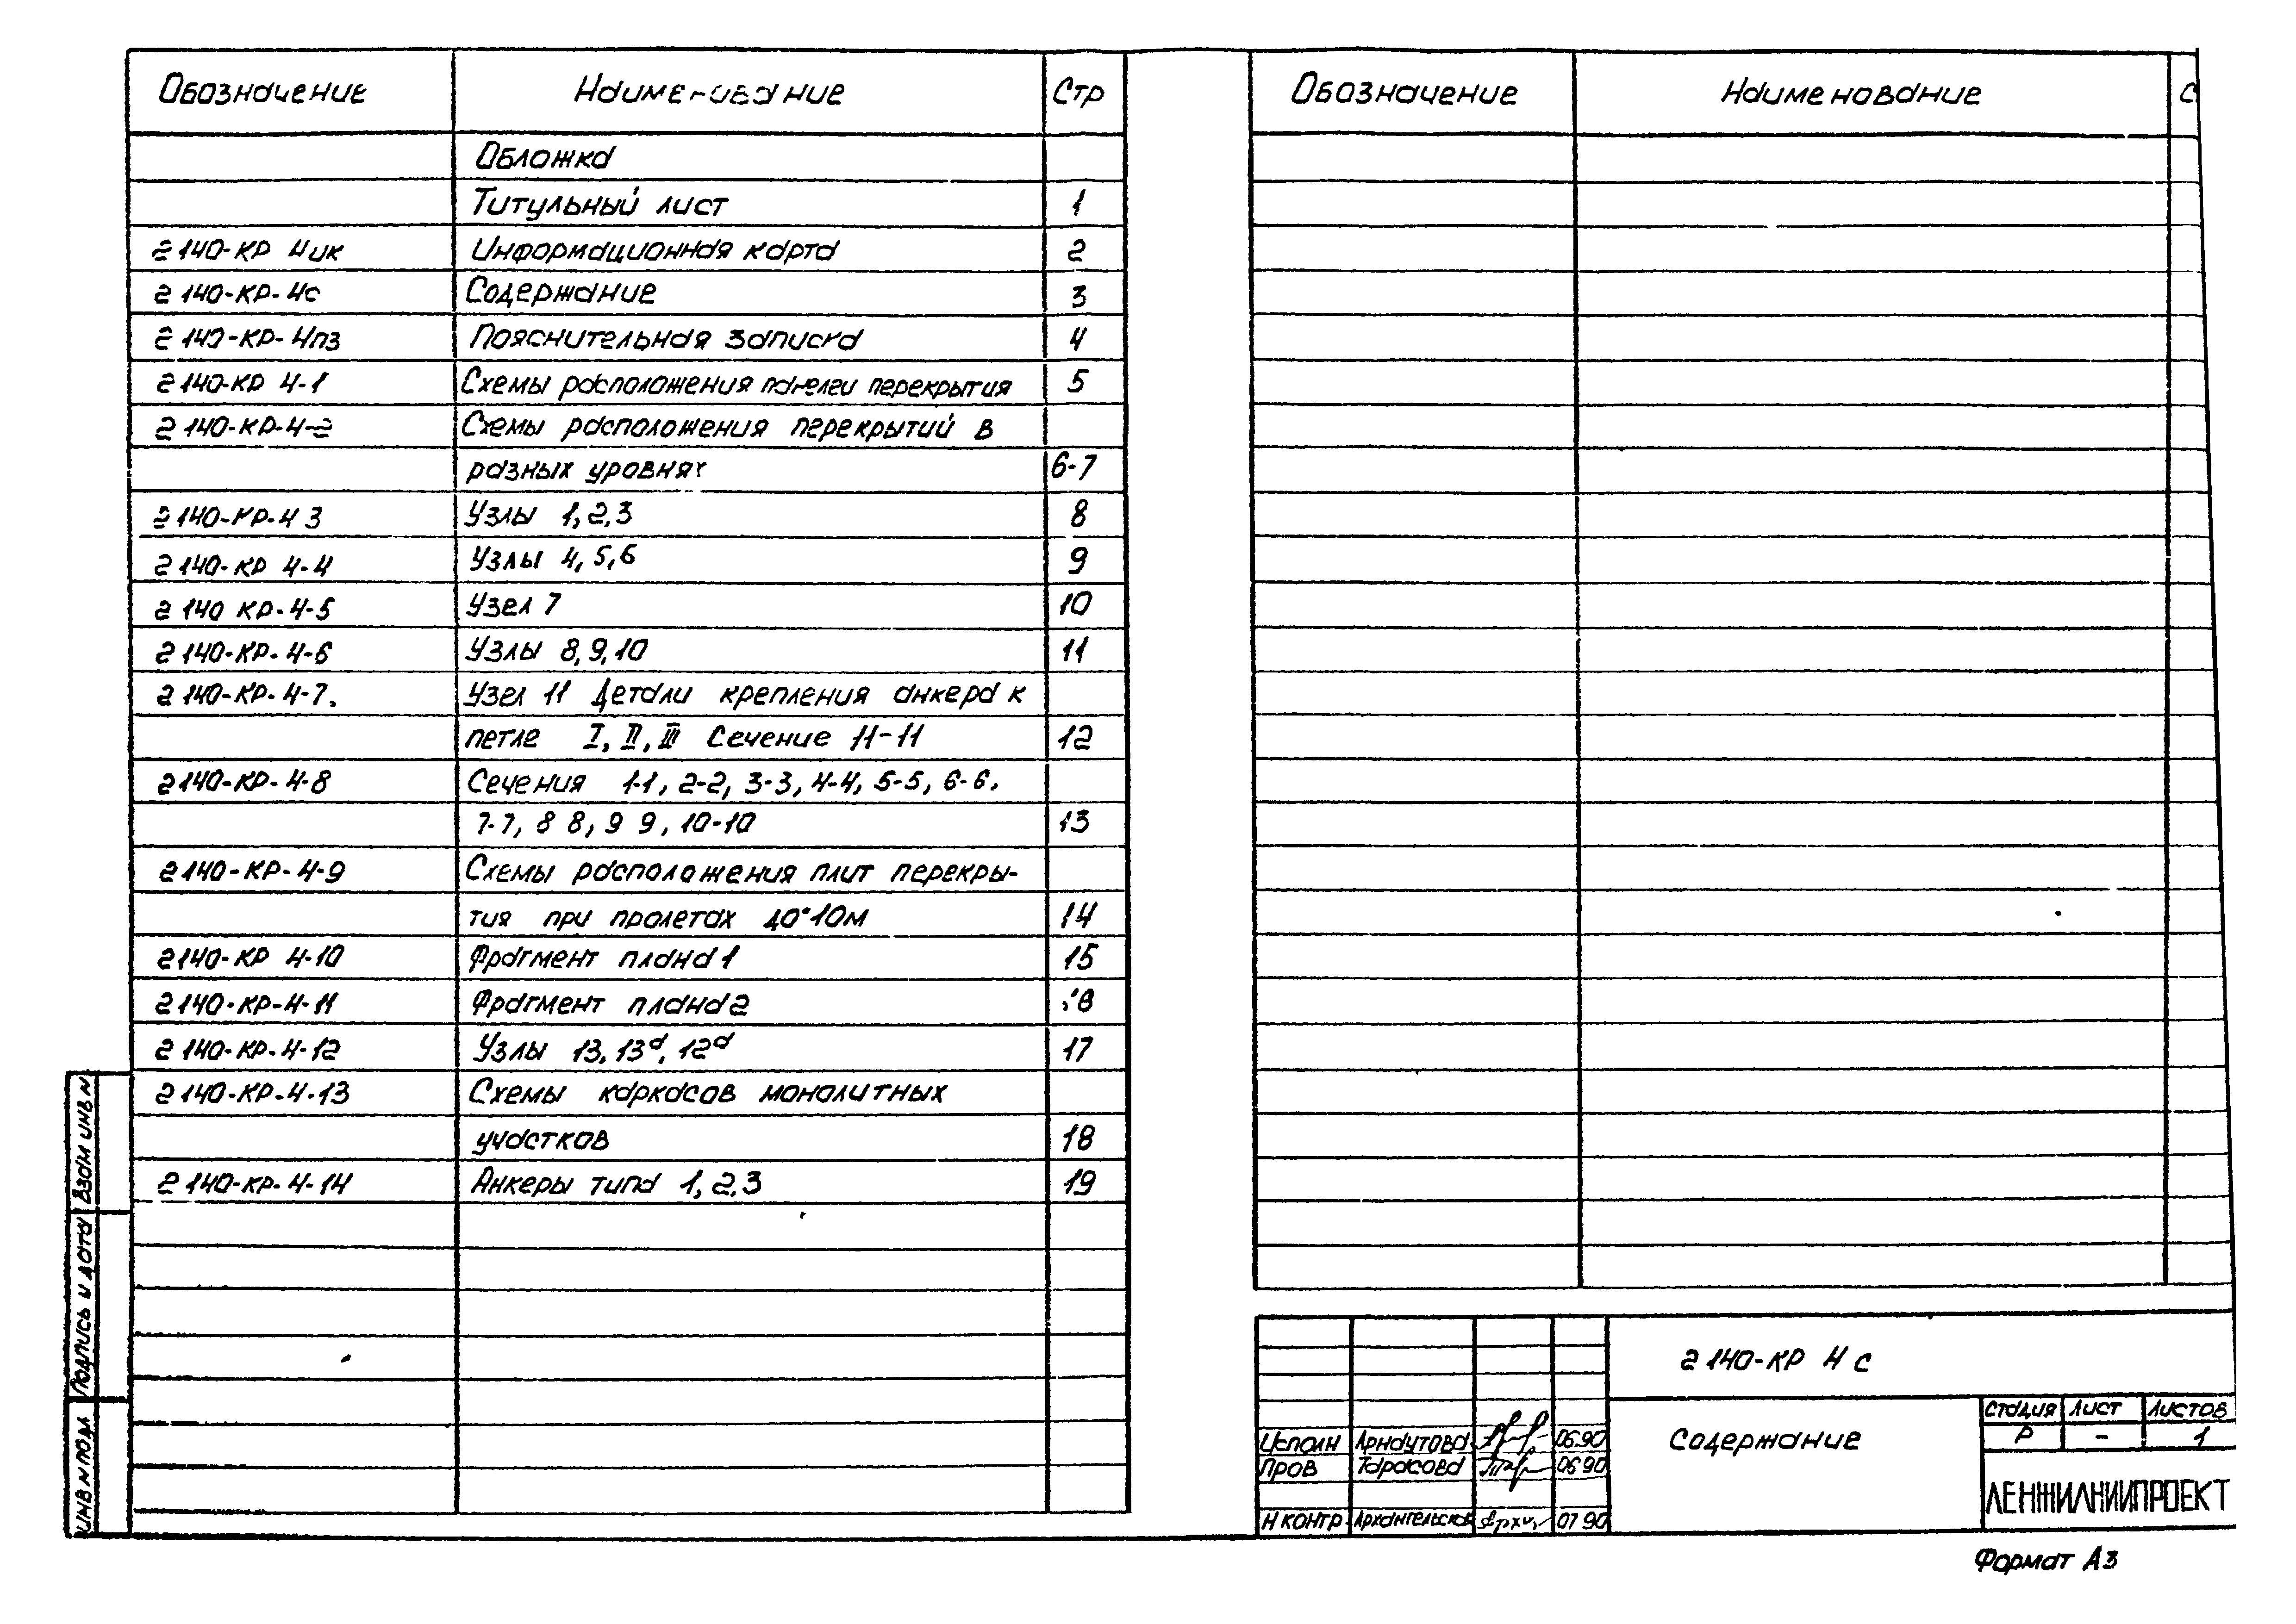 Обозначение Наименование Стр
Обложка
Титульный лист 1
2 140-КР 4ик Информационная карта 2
2 140-КР-4с Содержание 3
2 140-КР-4пз Пояснительная записка 4
2 140-КР 4-1 Схемы расположения панелей перекрытия 5
2 140-КР-4-2 Схемы расположения перекрытий в
разных уровнях 6-7
2 140-КР-4 3 Узлы 1,2,3 8
2 140-КР 4-4 Узлы 4,5,6 9
2 140 КР-4-5 Узел 7 10
2 140-КР-4-6 Узлы 8,9,10 11
2 140-КР-4-7. Узел 11 Детали крепления анкера к
петле I, II, III Сечение 11-11 12
2 140-КР-4-8 Сечения 1-1, 2-2, 3-3, 4-4, 5-5, 6-6,
7-7, 8 8, 9 9, 10-10 13
2 140-КР-4-9 Схемы расположения плит перекры-
тия при пролетах до 10м 14
2 140-КР 4-10 Фрагмент плана 1 15
2 140-КР-4-11 Фрагмент плана 2
2 140-КР-4-12 Узлы 13, 13а, 12а 17
2 140-КР-4-13 Схемы каркасов монолитных
участков 18
2 140-КР-4-14 Анкеры типа 1, 2,3 19
Обозначение Наименование С
2 140-КР 4 с
Содержание
Стадия Лист Листов
Р - 1
ЛЕНЖИЛНИИПРОЕКТ
Исполн Арнаутова 06.90
Пров Тарасова 06 90
Н контр Архангельская 07 90
Взам инв N
Подпись и дата
Инв N подл
Формат А3